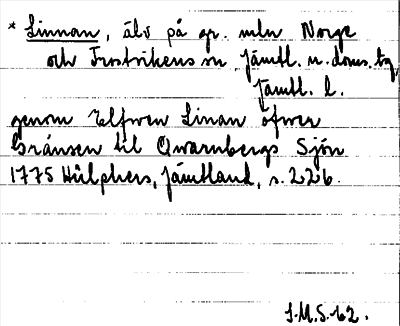 * Linnan, älv på gr. mln Norge
och Frostvikens sn, Jämtl. n. doms. tg,
Jämtl. l.
genom Elfwen Linan öfwer
Gränsen til Qwarnbergs Sjön
1775 Hülphers, Jämtland, s. 226.
S.M.S. 62.